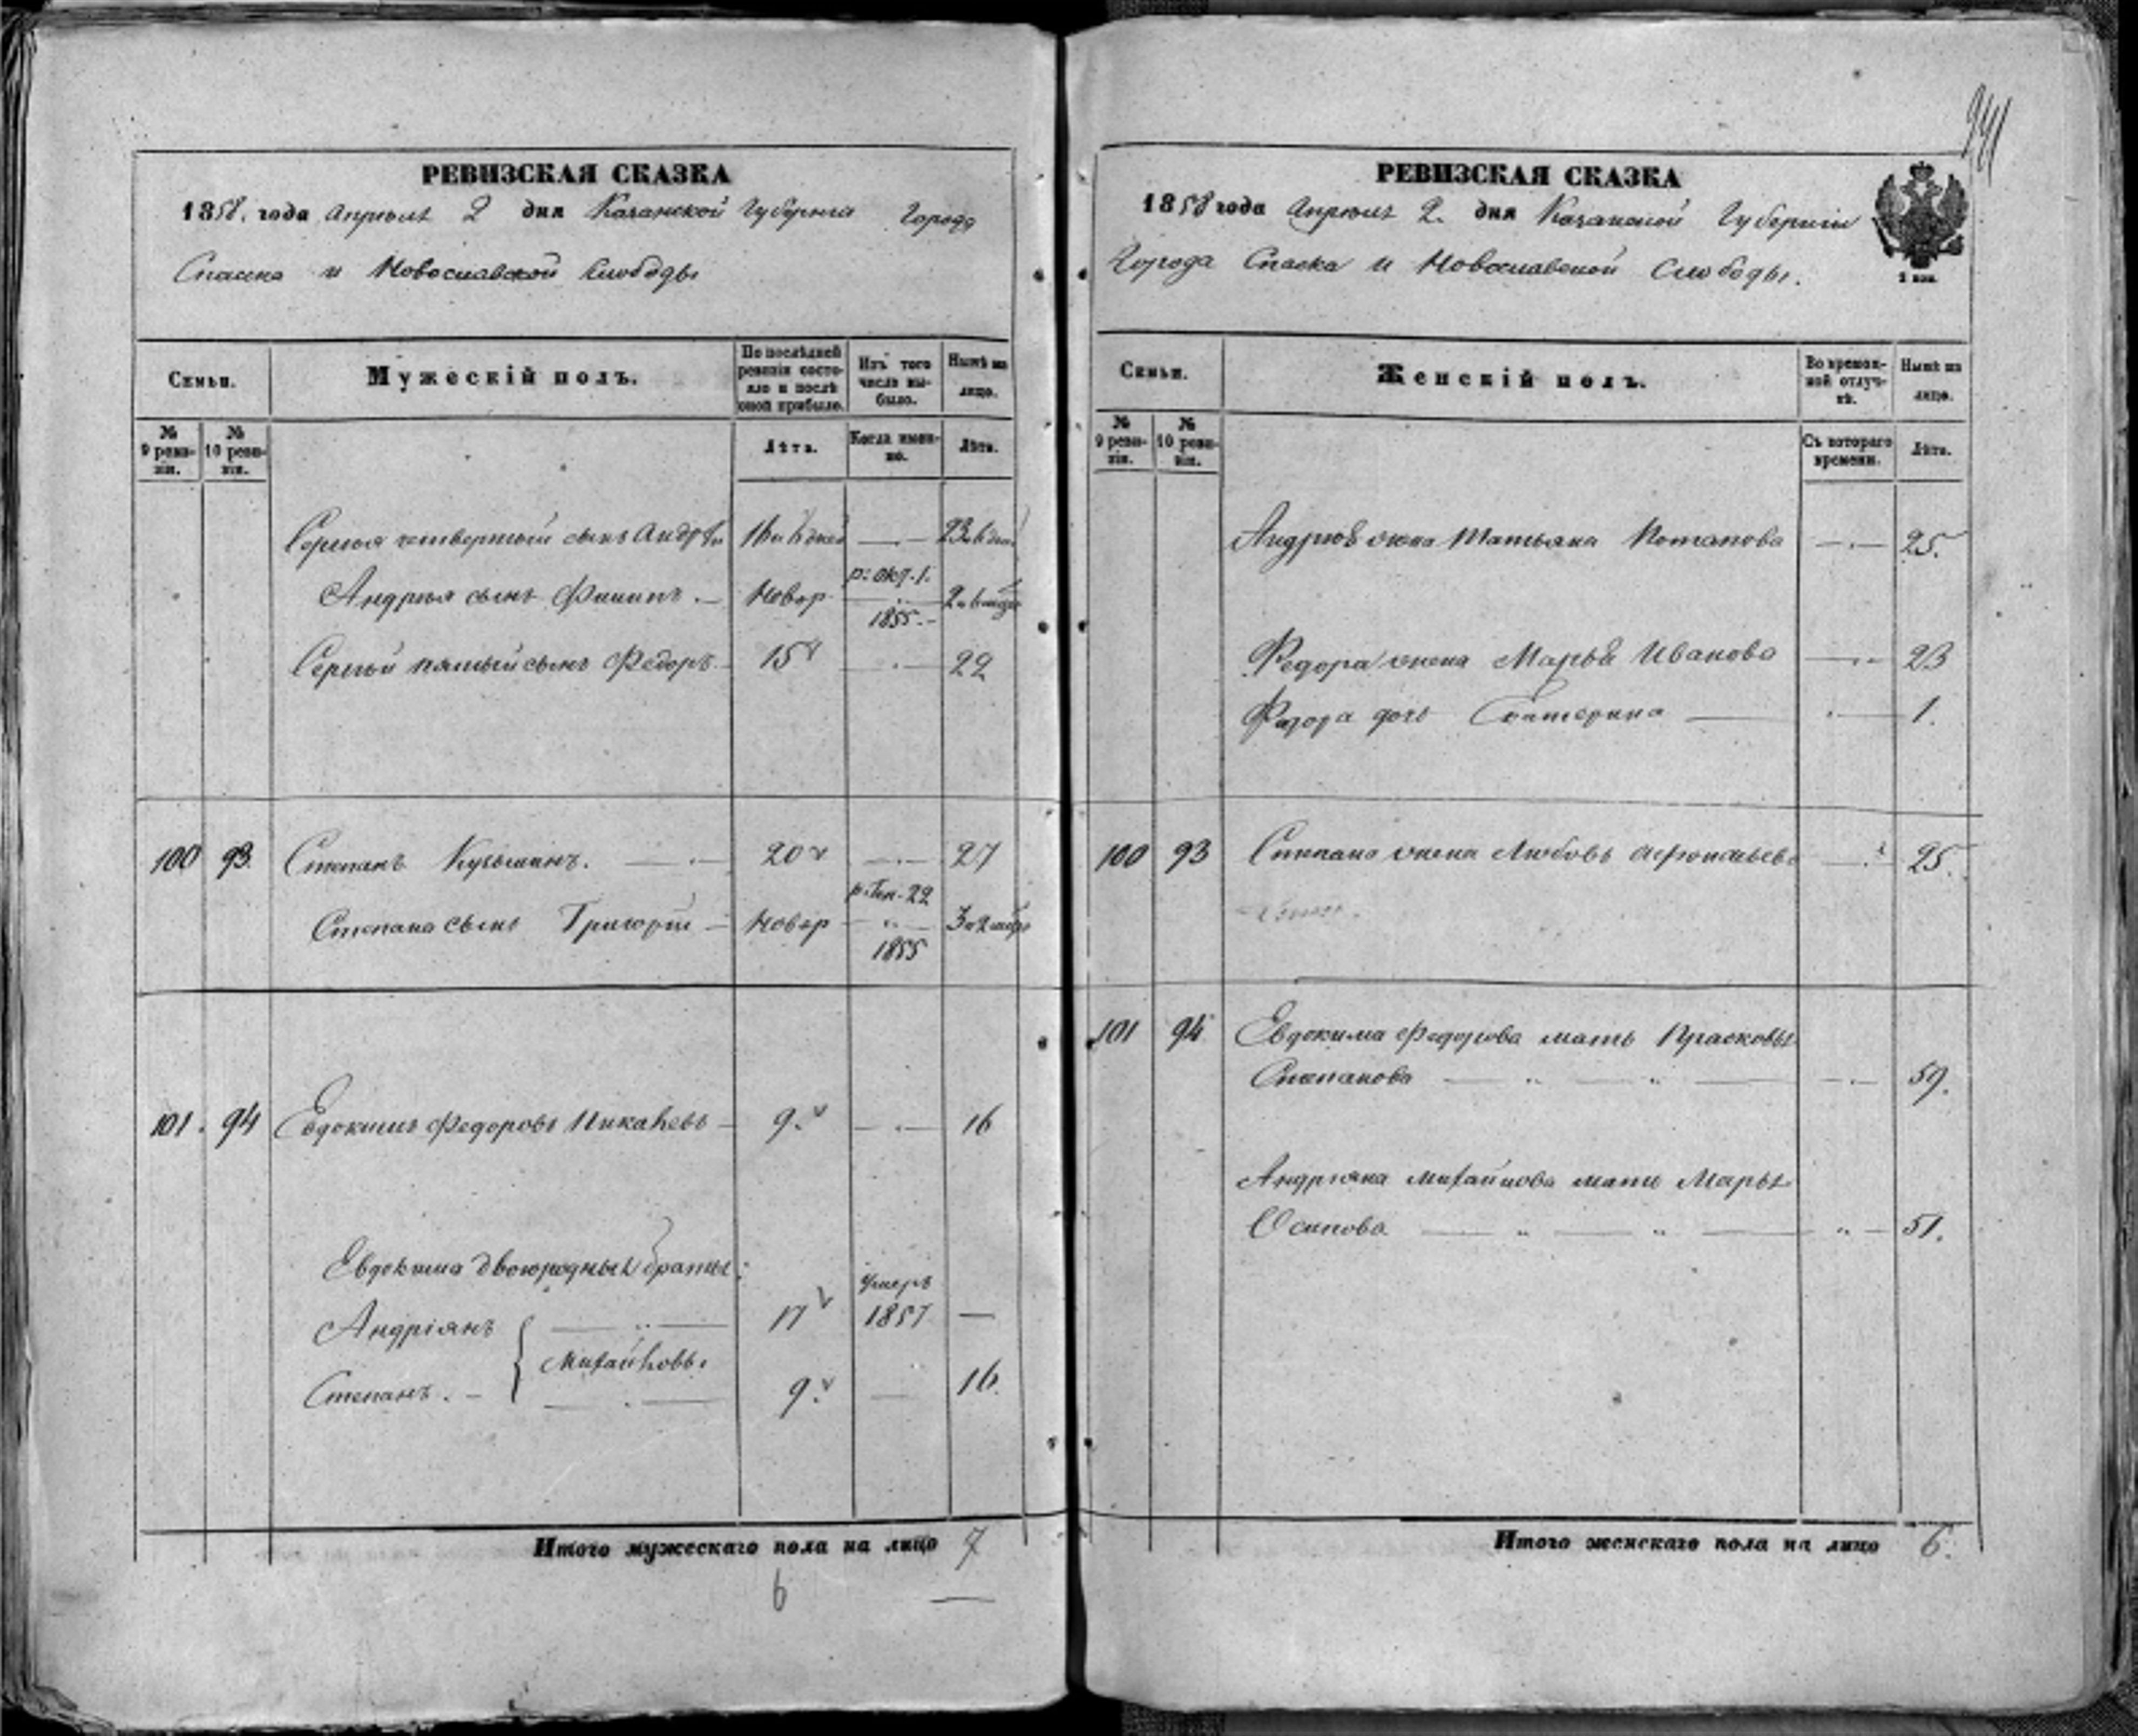 441
РЕВИЗСКАЯ СКАЗКА
1858. года Апреля 2 дня Казанской Губернии Города
Спаска и Новоспавской Слободы
Семьи.
Мужескій полъ.
По послѣдней ревизіи состояло и послѣ оной прибыло.
Изъ того числа выбыло.
Нынѣ на лицо.
№ 9 ревизіи.
№ 10 ревизіи.
Лѣта.
Когда именно.
Лѣта.
Сергѣя четвертый сынъ Андрѣй
Андрѣя сынъ Филипъ. Новор р: окт. 1. 1855.
Сергѣй пятый сынъ Федоръ 15 22
100 93. Степанъ Кузьминъ. 20 27
Степана сынъ Григорій Новор р. Ген. 22 1855
101. 94 Евдокимъ Федоровъ 9. 16
Евдокима двоюродныи братьи:
Андріянъ 17 умеръ 1857 —
Михайловы
Степанъ. 9. 16.
Итого мужескаго пола на лицо 7
6
РЕВИЗСКАЯ СКАЗКА
1858 года Апреля 2. дня Казанской Губерніи
Города Спаска и Новоспавской Слободы.
2 коп.
Семьи.
Женскій полъ.
Во временной отлучкѣ.
Нынѣ на лицо.
№ 9 ревизіи.
№ 10 ревизіи.
Съ котораго времени.
Лѣта.
Андрѣя жена Татьяна Потапова 25.
Федора жена Марья Иванова 23
Федора дочь Екатерина 1.
100 93 Степана жена Любовь 25.
101 94 Евдокима Федорова мать Прасковья
Степанова 59.
Андріяна Михайлова мать Марья
Осипова 51.
Итого женскаго пола на лицо 6.